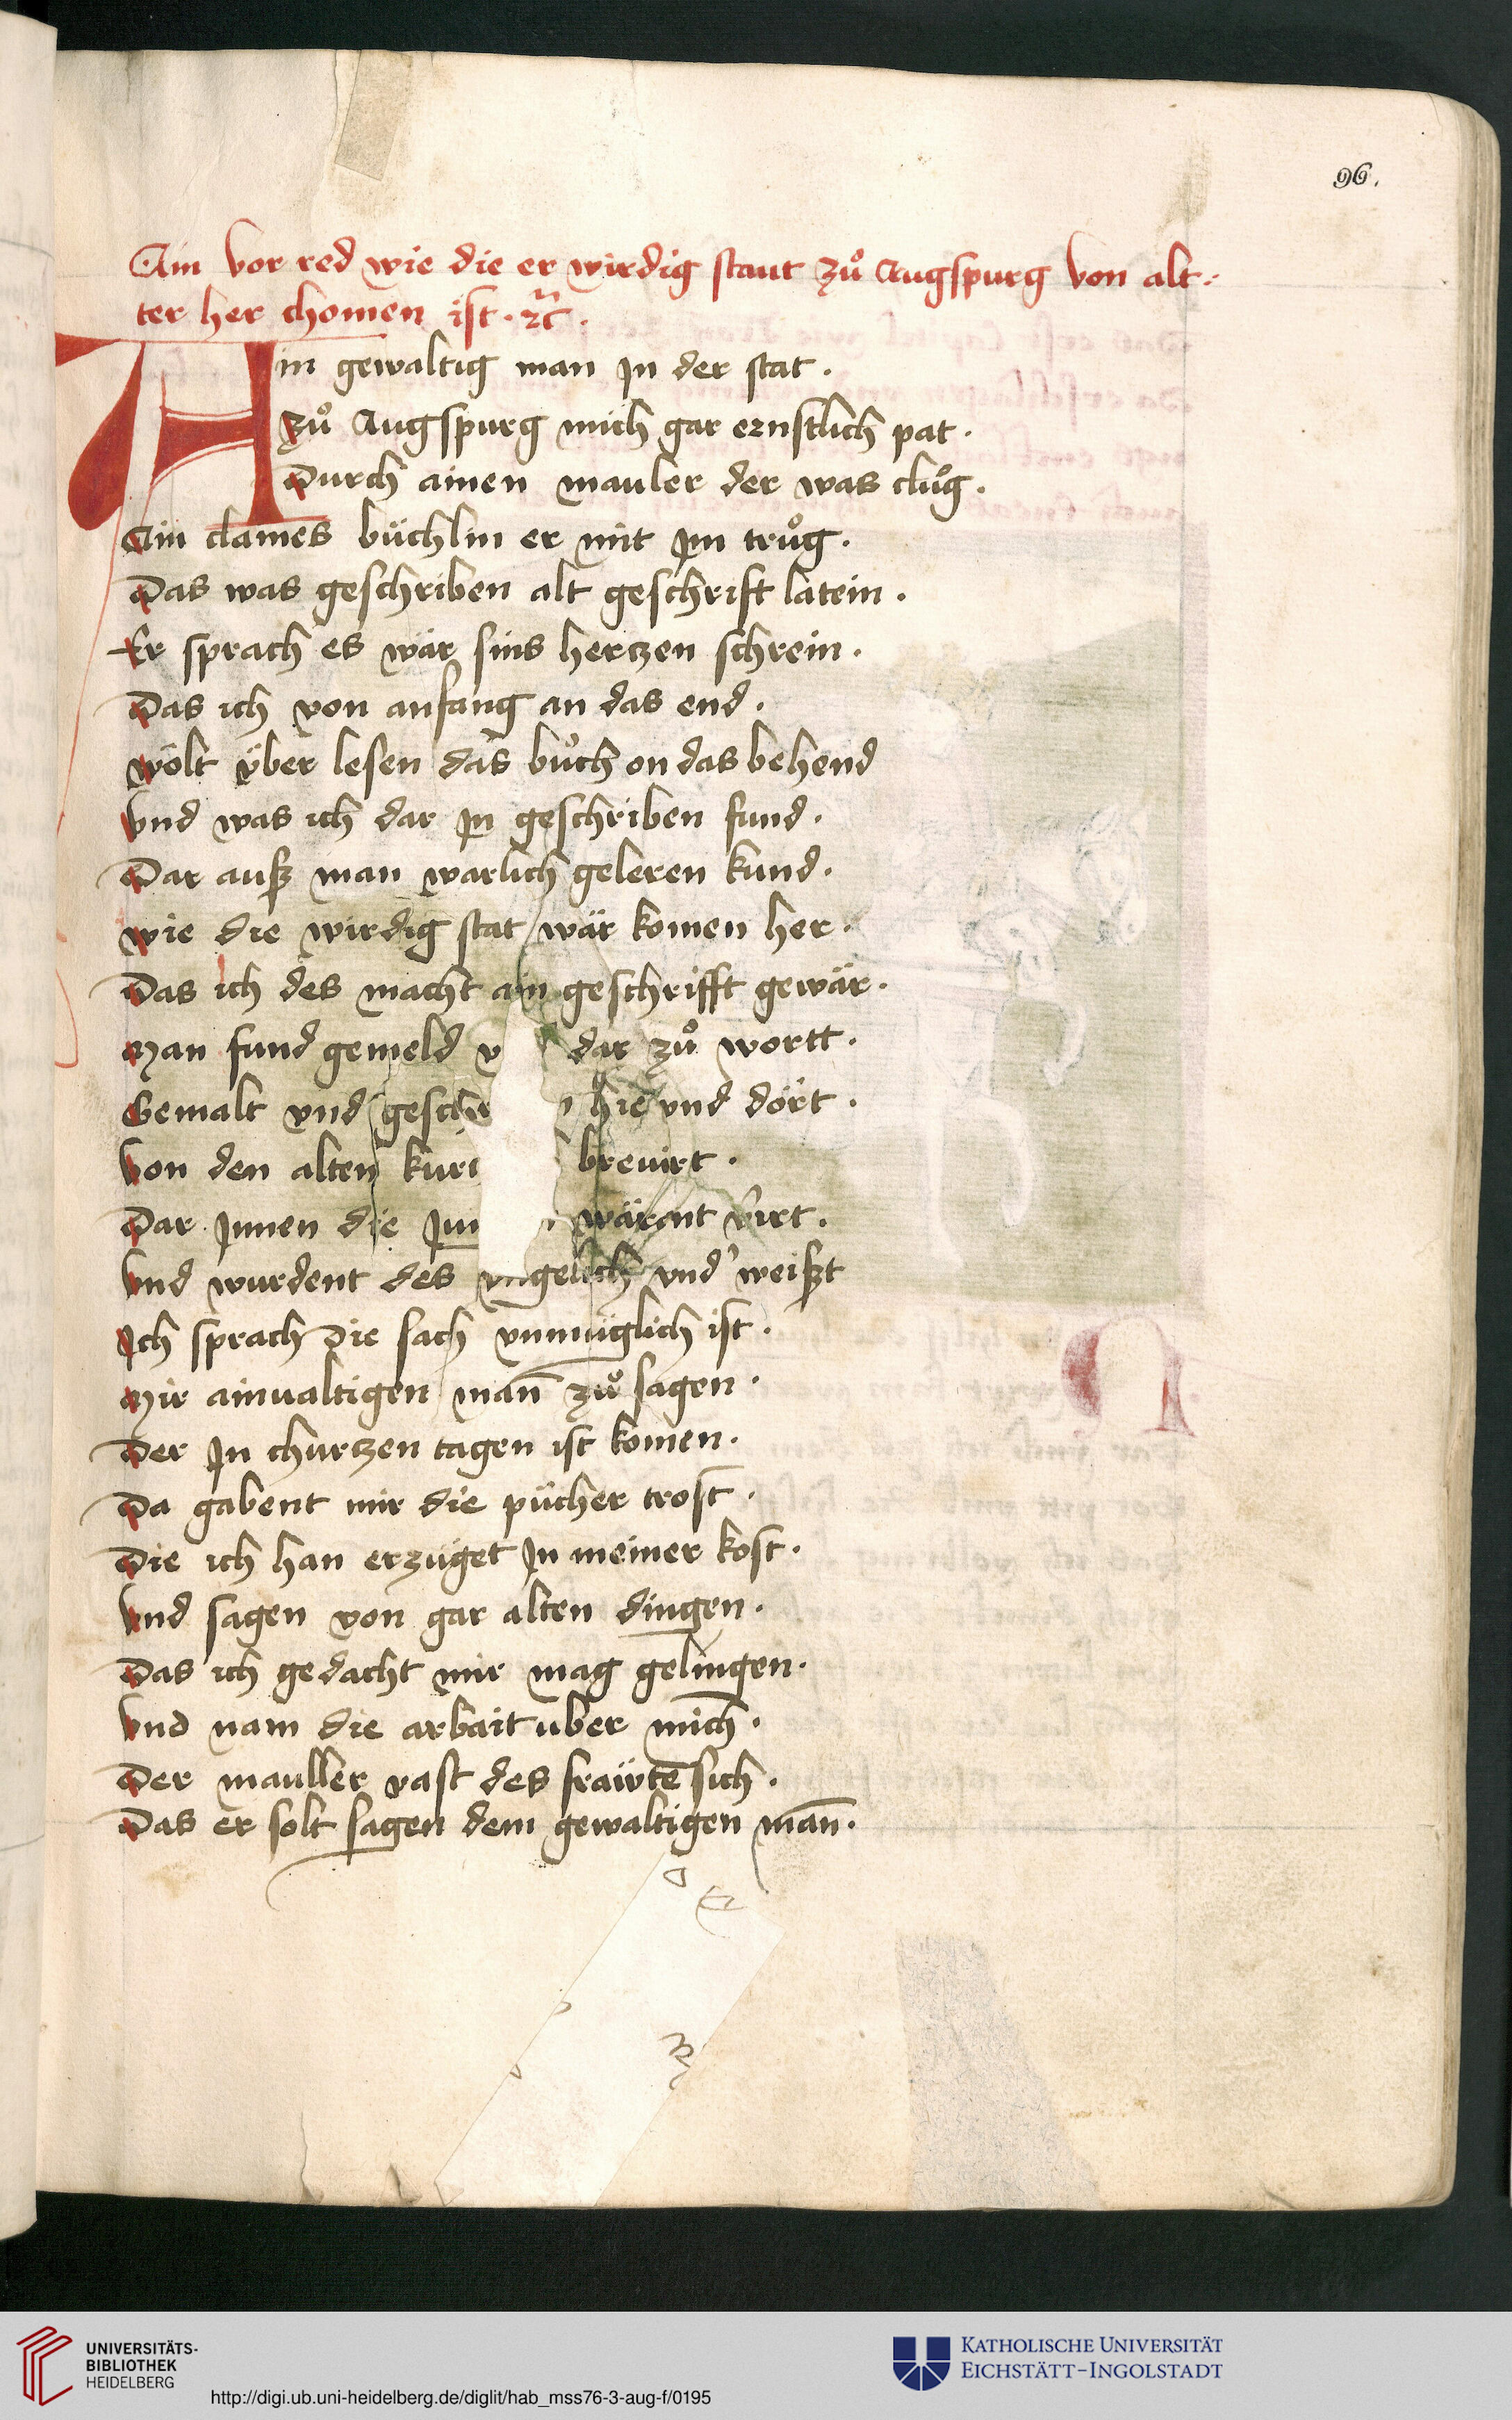 96.
Ain vor red wie die er wirdig staut zů Augspurg von alt-
ter her chomen ist · ⁊c̃ ·
Ain gewaltig man jn der stat ·
zů Augspurg mich gar ernstlich pat ·
Durch ainen mauler der was clůg ·
Ain claines büchlin er mit jm trůg ·
Das was geschriben alt geschrift latein ·
Er sprach es wär sins hertzen schrein ·
Das ich von anfang an das end ·
wölt über lesen das bůch on das behend
Vnd was ich dar jn geschriben fund ·
Dar ausz man warlich geleren kund ·
wie die wirdig stat wär komen her ·
Das ich des macht ain geschrifft gewär ·
Man fund gemeld v dar zů wortt ·
Gemalt vnd geschr n hie vnd dört ·
Von den alten kurt breuirt ·
Dar jnnen die jun wärent
Vnd wurdent des vngelich vnd weiszt
Ich sprach die sach vnmüglich ist ·
Mir ainualtigen man̄ zů sagen ·
Der jn churtzen tagen ist komen ·
Da gabent mir die pücher trost ·
Die ich han erzüget jn meiner kost ·
Vnd sagen von gar alten dingen ·
Das ich gedacht mir mag gelingen ·
Vnd nam die arbait uber mich ·
Der mauller vast des fräwte sich ·
Das er solt sagen dem gewaltigen man̄ ·
UNIVERSITÄTS-
BIBLIOTHEK
HEIDELBERG
http://digi.ub.uni-heidelberg.de/diglit/hab_mss76-3-aug-f/0195
KATHOLISCHE UNIVERSITÄT
EICHSTÄTT-INGOLSTADT